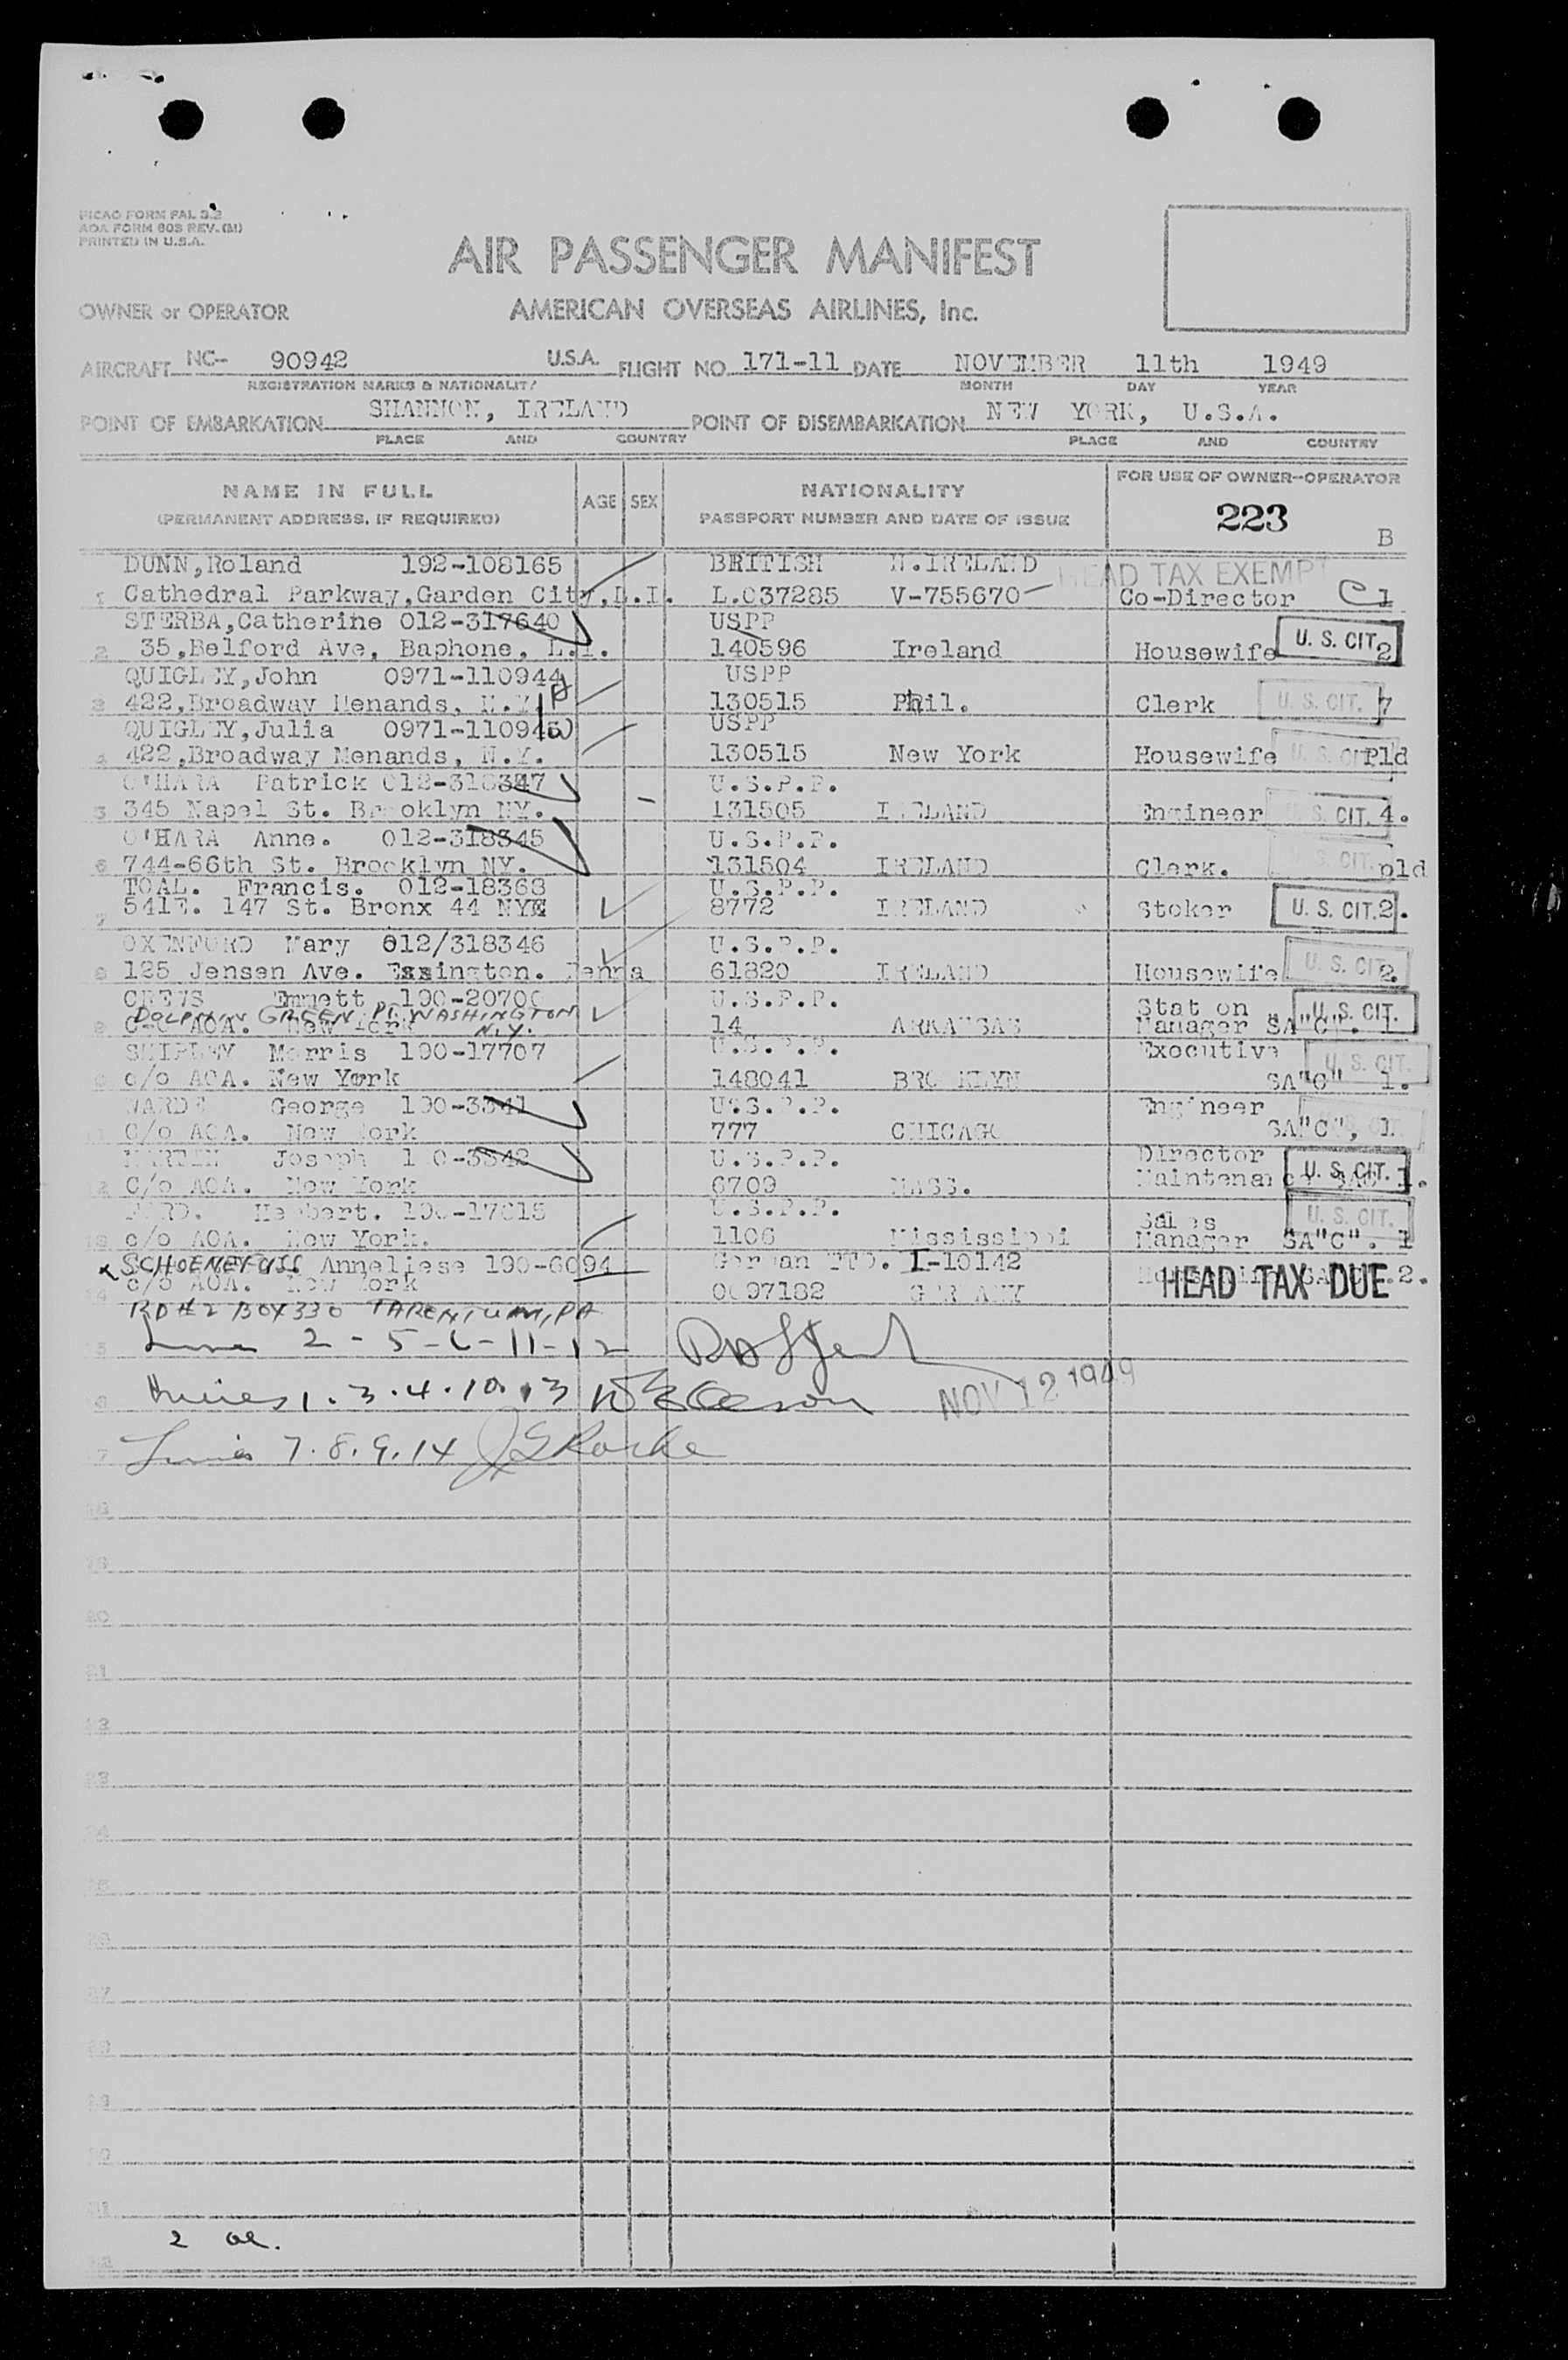 PICAO FORM FAL 3.2
AOA FORM 603 REV. (M)
PRINTED IN U.S.A.
AIR PASSENGER MANIFEST
OWNER or OPERATOR AMERICAN OVERSEAS AIRLINES, Inc.
AIRCRAFT NC- 90942 U.S.A. FLIGHT NO. 171-11 DATE NOVEMBER 11th 1949
REGISTRATION MARKS & NATIONALITY MONTH DAY YEAR
POINT OF EMBARKATION SHANNON, IRELAND POINT OF DISEMBARKATION NEW YORK, U.S.A.
PLACE AND COUNTRY PLACE AND COUNTRY
NAME IN FULL AGE SEX NATIONALITY FOR USE OF OWNER-OPERATOR
(PERMANENT ADDRESS, IF REQUIRED) PASSPORT NUMBER AND DATE OF ISSUE 223 B
DUNN,Roland 192-108165 BRITISH N.IRELAND HEAD TAX EXEMPT
1 Cathedral Parkway,Garden City,L.I. L.037285 V-755670 Co-Director C 1
STERBA,Catherine 012-317640 USPP
2 35,Belford Ave, Baphone, L.I. 140596 Ireland Housewife U. S. CIT 2
QUIGLEY,John 0971-110944 USPP
3 422,Broadway Menands, N.Y. 130515 Phil. Clerk U. S. CIT. 7
QUIGLEY,Julia 0971-110945 USPP
4 422,Broadway Menands, N.Y. 130515 New York Housewife U. S. CIT Pld
O'HARA Patrick 012-318347 U.S.P.P.
5 345 Napel St. Brooklyn NY. 131505 IRELAND Engineer U. S. CIT. 4.
O'HARA Anne. 012-318345 U.S.P.P.
6 744-66th St. Brooklyn NY. 131504 IRELAND Clerk. U. S. CIT. pld
TOAL. Francis. 012-18368 U.S.P.P.
7 541E. 147 St. Bronx 44 NY 8772 IRELAND Stoker U. S. CIT. 2.
OXENFORD Mary 012/318346 U.S.P.P.
8 125 Jensen Ave. Essington. Penna 61820 IRELAND Housewife U. S. CIT 2.
CREWS Emmett 190-20700 U.S.P.P. Station U. S. CIT.
DOLPHIN GREEN PT WASHINGTON N.Y.
9 C-O AOA. New York 14 ARKANSAS Manager SA"C". 1
SHIPLEY Morris 190-17707 U.S.P.P. Executive U. S. CIT.
c/o AOA. New York 148041 BROOKLYN SA"C" 1.
WARDE George 190-3341 U.S.P.P. Engineer
11 C/o AOA. New York 777 CHICAGO SA"C", 1
Joseph 190-3342 U.S.P.P. Director U. S. CIT.
C/o AOA. New York 6709 MASS. Maintenance 1.
Herbert. U.S.P.P. Sales U. S. CIT.
13 c/o AOA. New York. 1106 Mississippi Manager SA"C". 1
Anneliese 190-6094 German TTD. I-10142
14 c/o AOA. New York 0097182 GERMANY 2.
HEAD TAX DUE
RD #2 BOX 330 TARENTUM, PA
2 - 5 - 6 - 11 - 12
1. 3. 4. 10. 13 NOV 12 1949
Lines 7. 8. 9. 14
18
19
20
21
22
23
24
25
26
27
28
29
30
31
2